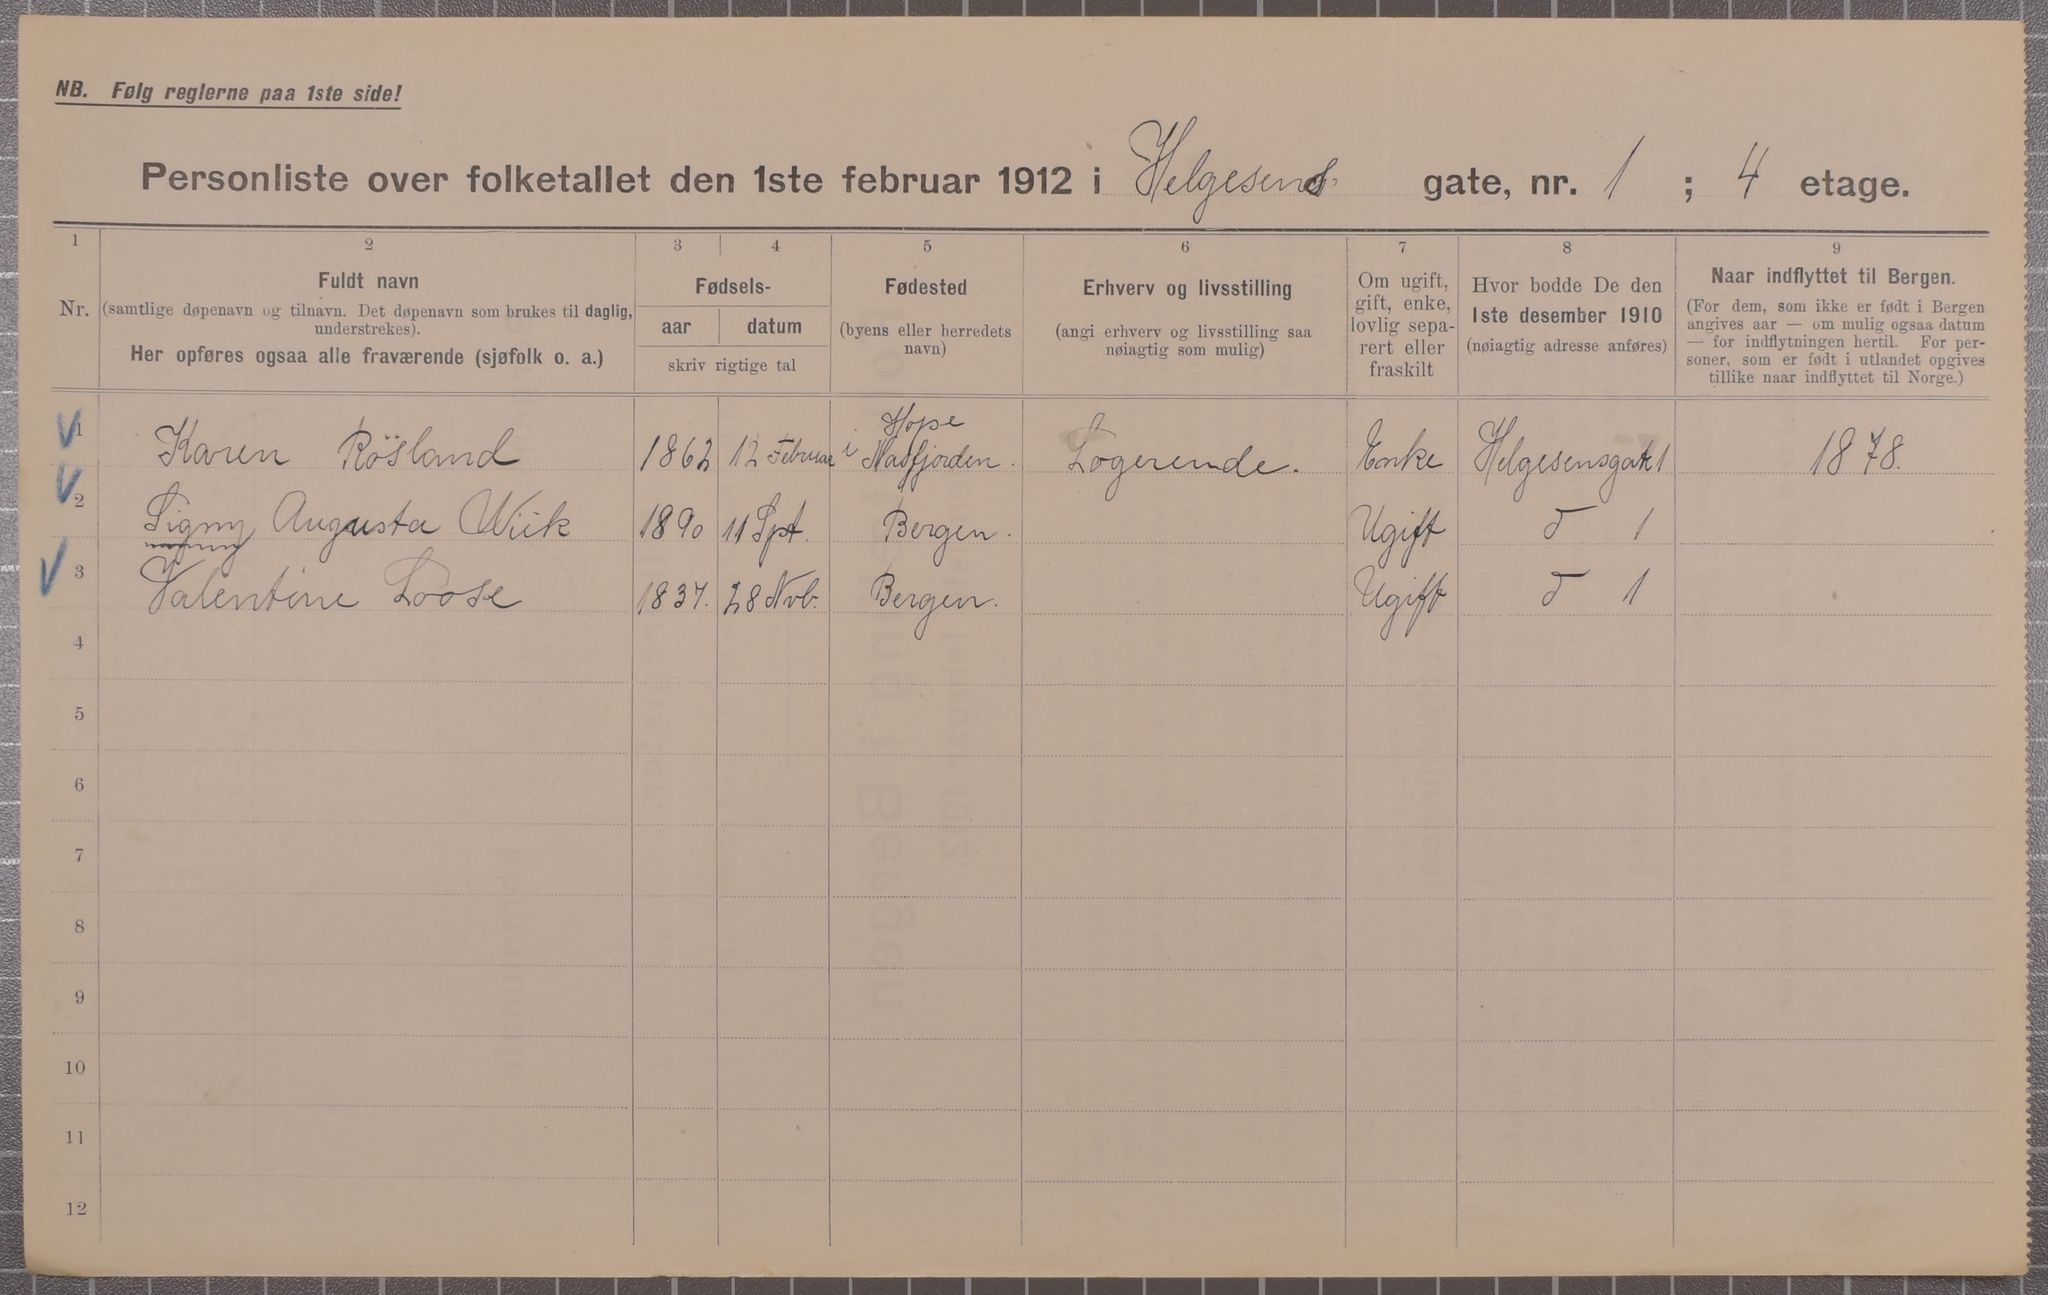 NB. Følg reglerne paa 1ste side!
Personliste over folketallet den 1ste februar 1912 i Helgesens gate, nr. 1 ; 4 etage.
1 2 3 4 5 6 7 8 9
Nr.
Fuldt navn
(samtlige døpenavn og tilnavn. Det døpenavn som brukes til daglig,
understrekes).
Her opføres ogsaa alle fraværende (sjøfolk o. a.)
Fødsels-
aar datum
skriv rigtige tal
Fødested
(byens eller herredets
navn)
Erhverv og livsstilling
(angi erhverv og livsstilling saa
nøiagtig som mulig)
Om ugift,
gift, enke,
lovlig sepa-
rert eller
fraskilt
Hvor bodde De den
1ste desember 1910
(nøiagtig adresse anføres)
Naar indflyttet til Bergen.
(For dem, som ikke er født i Bergen
angives aar — om mulig ogsaa datum
— for indflytningen hertil. For per-
soner, som er født i utlandet opgives
tillike naar indflyttet til Norge.)
Hope
1 Karen Rösland 1862 12 Februar i Masfjorden. Logerende. Enke Helgesensgate 1 1878.
2 Signy Augusta Wiik 1890 11 Spt. Bergen. Ugift D 1
3 Valentine Loose 1837. 28 Nvb. Bergen. Ugift D 1
4
5
6
7
8
9
10
11
12